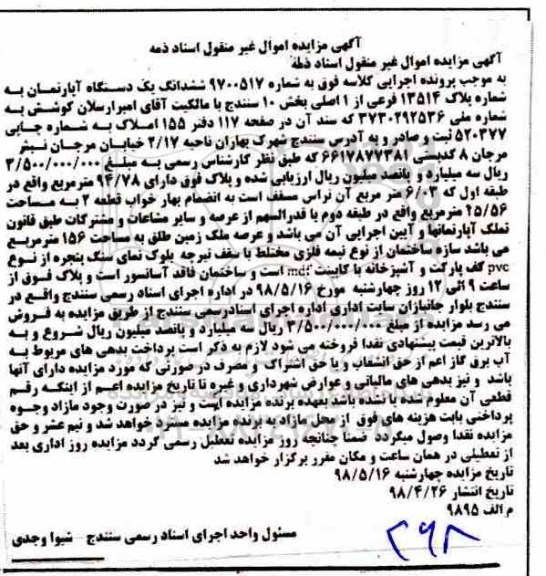 آگهی مزایده اموال غیر منقول اسناد ذمه
آگهی مزایده اموال غیر منقول اسناد ذمه
به موجب پرونده اجرایی کلاسه فوق به شماره ۹۷۰۰۵۱۷ ششدانگ یک دستگاه آپارتمان به
شماره پلاک ۱۳۵۱۴ فرعی از ۱ اصلی بخش ۱۰ سنندج با مالکیت آقای امیرارسلان کوشش به
شماره ملی ۳۷۳۰۲۹۲۵۳۶ که سند آن در صفحه ۱۱۷ دفتر ۱۵۵ املاک به شماره چاپی
۵۲۰۳۷۷ ثبت و صادر و به آدرس سنندج شهرک بهاران ناحیه ۲/۱۷ خیابان مرجان نبش
مرجان ۸ کدپستی ۶۶۱۷۸۷۷۳۸۱ که طبق نظر کارشناس رسمی به مبلغ ۳/۵۰۰/۰۰۰/۰۰۰
ریال سه میلیارد و پانصد میلیون ریال ارزیابی شده و پلاک فوق دارای ۹۴/۷۸ مترمربع واقع در
طبقه اول که ۶/۰۳ متر مربع آن تراس مسقف است به انضمام بهار خواب قطعه ۲ به مساحت
۲۵/۵۶ مترمربع واقع در طبقه دوم با قدرالسهم از عرصه و سایر مشاعات و مشترکات طبق قانون
تملک آپارتمانها و آیین اجرایی آن می باشد و عرصه ملک زمین طلق به مساحت ۱۵۶ مترمربع
می باشد سازه ساختمان از نوع نیمه فلزی مختلط با سقف تیرچه بلوک نمای سنگ پنجره از نوع
pvc کف پارکت و آشپزخانه با کابینت mdf است و ساختمان فاقد آسانسور است و پلاک فوق از
ساعت ۹ الی ۱۲ روز چهارشنبه مورخ ۹۸/۵/۱۶ در اداره اجرای اسناد رسمی سنندج واقع در
سنندج بلوار جانبازان سایت اداری اداره اجرای اسنادرسمی سنندج از طریق مزایده به فروش
می رسد مزایده از مبلغ ۳/۵۰۰/۰۰۰/۰۰۰ ریال سه میلیارد و پانصد میلیون ریال شروع و به
بالاترین قیمت پیشنهادی نقدا فروخته می شود لازم به ذکر است پرداخت بدهی های مربوط به
آب برق گاز اعم از حق انشعاب و یا حق اشتراک و مصرف در صورتی که مورد مزایده دارای آنها
باشد و نیز بدهی های مالیاتی و عوارض شهرداری و غیره تا تاریخ مزایده اعم از اینکه رقم
قطعی آن معلوم شده یا نشده باشد بعهده برنده مزایده است و نیز در صورت وجود مازاد وجوه
پرداختی بابت هزینه های فوق از محل مازاد به برنده مزایده مسترد خواهد شد و نیم عشر و حق
مزایده نقدا وصول میگردد ضمنا چنانچه روز مزایده تعطیل رسمی گردد مزایده روز اداری بعد
از تعطیلی در همان ساعت و مکان مقرر برگزار خواهد شد
تاریخ مزایده چهارشنبه ۹۸/۵/۱۶
تاریخ انتشار ۹۸/۴/۲۶
م الف ۹۸۹۵
مسئول واحد اجرای اسناد رسمی سنندج شیوا وجدی